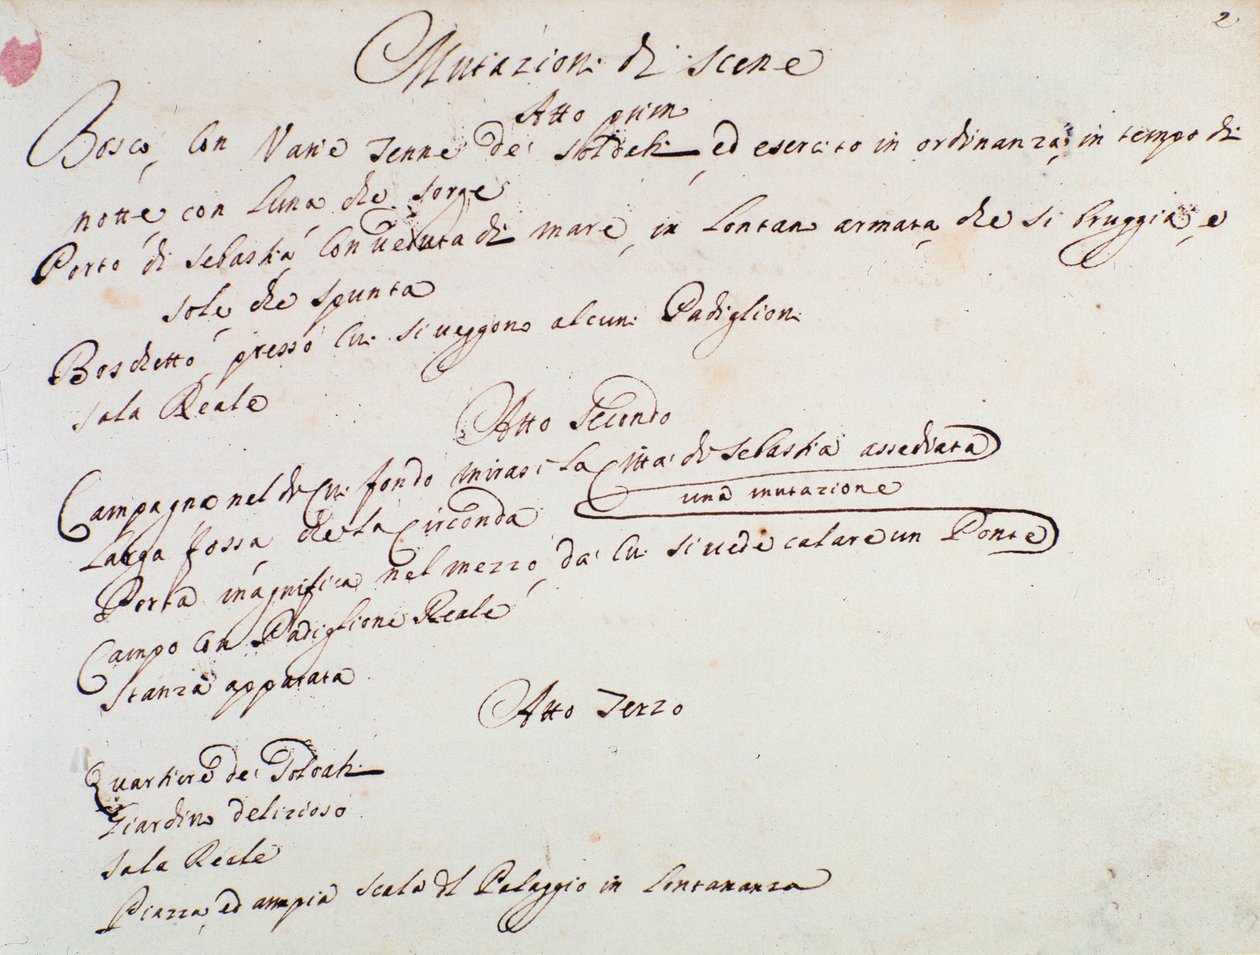 2
Mutazioni di scene
Atto primo
Bosco, con Varie Tenne de' Soldati, ed esercito in ordinanza, in tempo di
notte, con Luna, che sorge
Porto di Sebastia, con veduta di mare, in Lontano armata, che si bruggia, e
sole, che spunta
Boschetto, presso cui si veggono alcuni Padiglioni
Sala Reale
Atto Secondo
Campagna nel di cui fondo mirasi La Città di Sebastia assediata
una mutazione
Larga fossa, che La Circonda
Porta magnifica nel mezzo, da cui si vede calare un Ponte
Campo con Padiglione Reale
Stanza apparata
Atto Terzo
Quartiere de' Soldati
Giardino delizioso
Sala Reale
Piazza, ed ampia scala del Palaggio in Lontananza